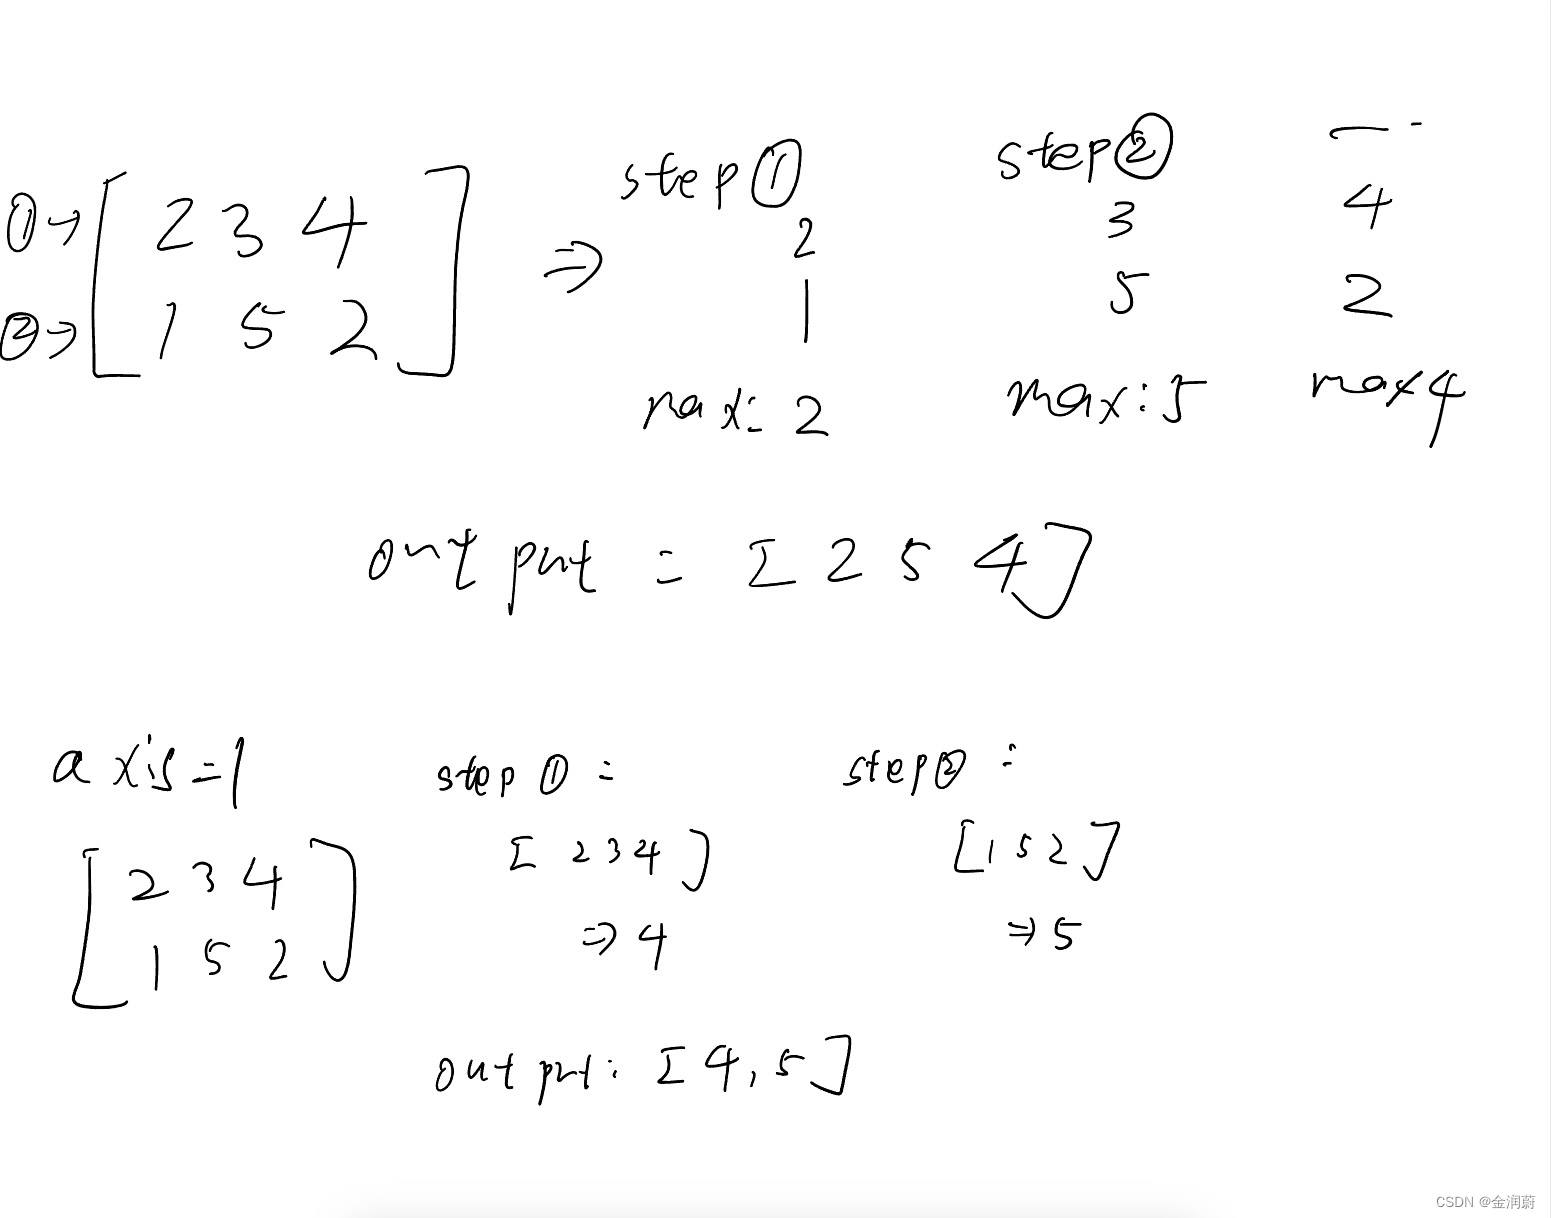 step① step② — -
①→ [ 2 3 4 ⇒ 2 3 4
②→ 1 5 2 ] 1 5 2
max: 2 max: 5 max 4
output = [ 2 5 4 ]
axis=1 step①: step②:
[ 2 3 4 [ 2 3 4 ] [ 1 5 2 ]
1 5 2 ] ⇒ 4 ⇒ 5
output: [ 4, 5 ]
CSDN @金润蔚